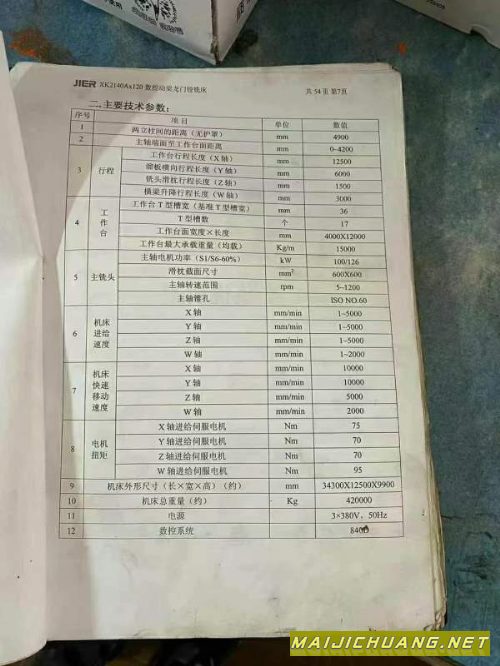 JIER XK2140Ax120 数控动梁龙门镗铣床 共 54 页 第7页
二.主要技术参数:
序号 项目 单位 数值
1 两立柱间的距离(无护罩) mm 4900
2 主轴端面至工作台面距离 mm 0~4200
3 行程 工作台行程长度(X 轴) mm 12500
溜板横向行程长度(Y 轴) mm 6000
铣头滑枕行程长度(Z 轴) mm 1500
横梁升降行程长度(W 轴) mm 3000
4 工作台 工作台 T 型槽宽(基准 T 型槽宽) mm 36
T 型槽数 个 17
工作台面宽度×长度 mm 4000X12000
工作台最大承载重量(均载) Kg/m 15000
5 主铣头 主轴电机功率(S1/S6-60%) kW 100/126
滑枕截面尺寸 mm² 600X600
主轴转速范围 rpm 5~1200
主轴锥孔 ISO NO.60
6 机床进给速度 X 轴 mm/min 1~5000
Y 轴 mm/min 1~5000
Z 轴 mm/min 1~5000
W 轴 mm/min 1~2000
7 机床快速移动速度 X 轴 mm/min 10000
Y 轴 mm/min 10000
Z 轴 mm/min 5000
W 轴 mm/min 2000
8 电机扭矩 X 轴进给伺服电机 Nm 75
Y 轴进给伺服电机 Nm 70
Z 轴进给伺服电机 Nm 70
W 轴进给伺服电机 Nm 95
9 机床外形尺寸(长×宽×高)(约) mm 34300X12500X9900
10 机床总重量(约) Kg 420000
11 电源 3×380V, 50Hz
12 数控系统 840D
MAIJICHUANG.NET